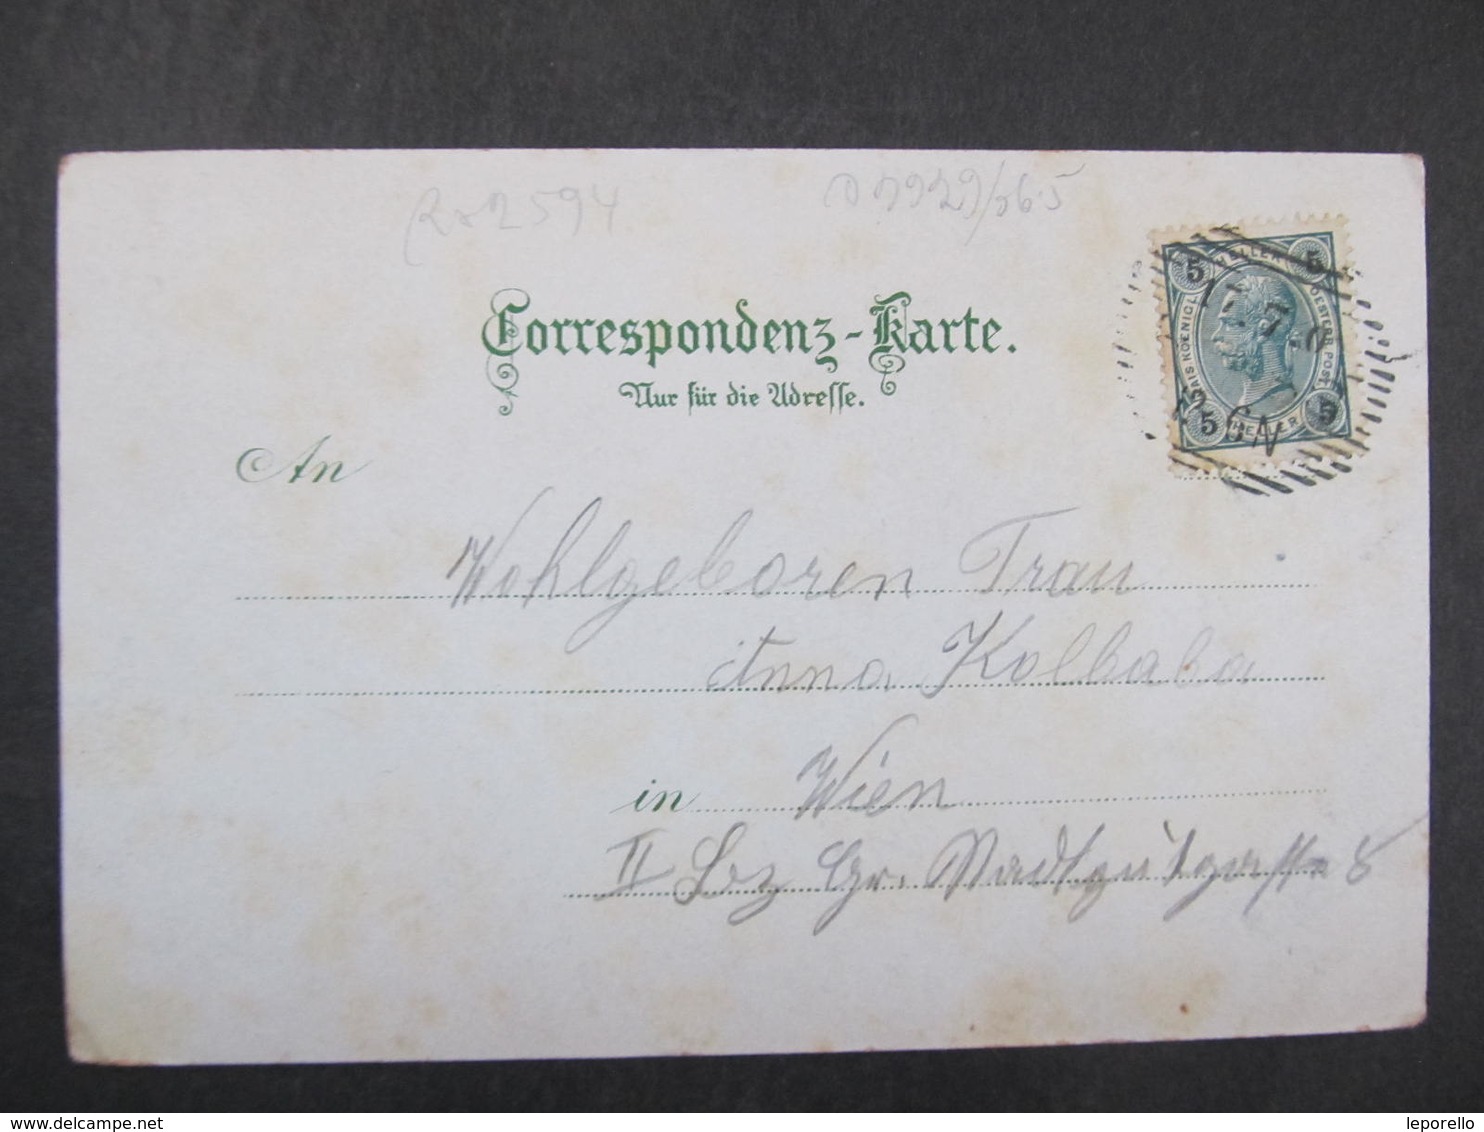 R 2594
Correspondenz-Karte.
Nur für die Adresse.
5 HELLER 5
KAIS KOENIGL OESTERR POST
5 HELLER 5
An
Wohlgeboren Frau
Anna Kolbaba
in Wien
II Bz Gr. Stadtgutgasse 8
www.delcampe.net
leporello